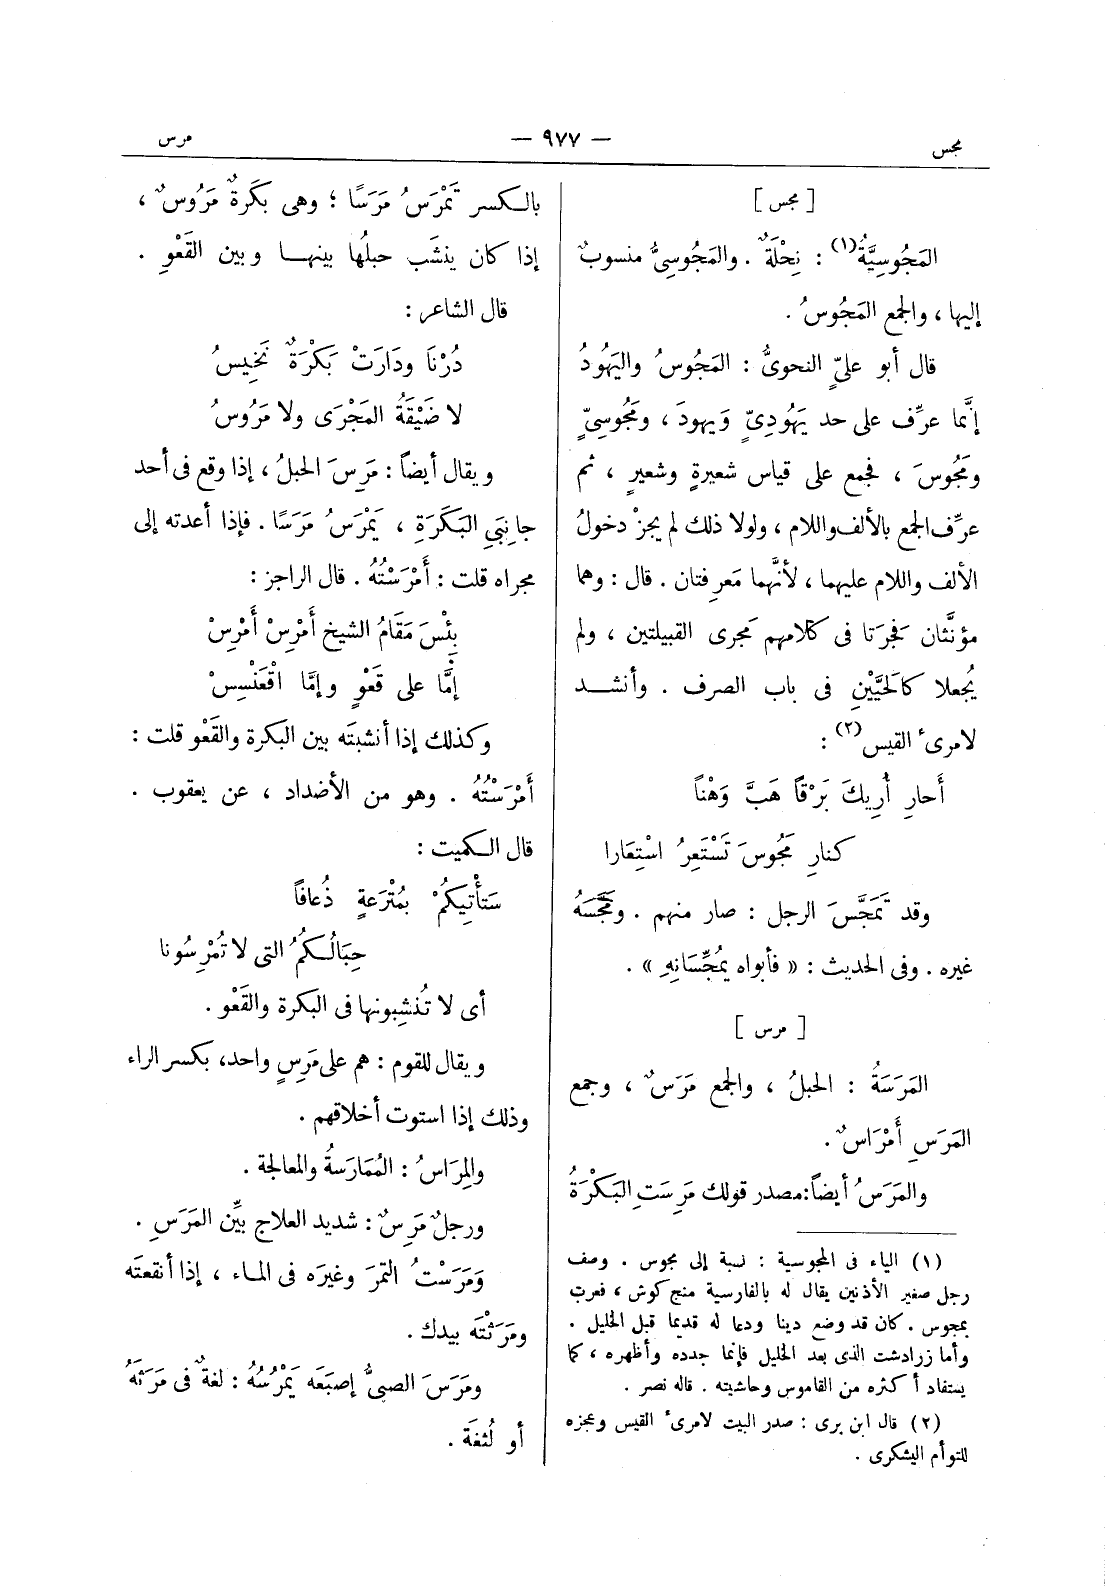 مجس
— ٩٧٧ —
مرس
[ مجس ]
المَجُوسِيَّةُ(١) : نِحْلَةٌ . والمَجُوسِىُّ منسوبٌ
إليها ، والجمع المَجُوسُ .
قال أبو علىٍّ النحوىُّ : المَجُوسُ واليَهُودُ
إنَّما عرِّف على حد يَهُودِىٍّ وَيهودَ ، ومَجُوسِىٍّ
ومَجُوسَ ، فجمع على قياس شعيرةٍ وشعيرٍ ، ثم
عرِّف الجمع بالألف واللام ، ولولا ذلك لم يجزْ دخولُ
الألف واللام عليهما ، لأنَّهما مَعرفتان . قال : وهما
مؤنَّثان فَجَرَتا فى كلامهم مَجرى القبيلتين ، ولم
يُجعلا كالحَيَّيْنِ فى باب الصرف . وأنشد
لامرىء القيس(٢) :
أَحارِ أُرِيكَ بَرْقاً هَبَّ وَهْناً
كنارِ مَجُوسَ تَسْتَعِرُ اسْتِعَارا
وقد تَمَجَّسَ الرجل : صار منهم . ومَجَّسَهُ
غيره . وفى الحديث : « فأبواه يمُجِّسَانِهِ » .
[ مرس ]
المَرَسَةُ : الحبلُ ، والجمع مَرَسٌ ، وجمع
المَرَسِ أَمْرَاسٌ .
والمَرَسُ أيضاً : مصدر قولك مَرِسَتِ البَكْرَةُ
(١) الياء فى المجوسية : نسبة إلى مجوس . وصف
رجل صغير الأذنين يقال له بالفارسية منج كوش ، فعرب
بمجوس . كان قد وضع دينا ودعا له قديما قبل الخليل .
وأما زرادشت الذى بعد الخليل فإنما جدده وأظهره ، كما
يستفاد أكثره من القاموس وحاشيته . قاله نصر .
(٢) قال ابن برى : صدر البيت لامرىء القيس وعجزه
للتوأم اليشكرى .
بالكسر تَمْرَسُ مَرَسًا ؛ وهى بَكَرَةٌ مَرُوسٌ ،
إذا كان ينشَب حبلُها بينهـا وبين القَعْوِ .
قال الشاعر :
دُرْنَا ودَارَتْ بَكْرَةٌ نَخِيسُ
لا ضَيْقَةُ المَجْرَى ولا مَرُوسُ
ويقال أيضاً : مَرِسَ الحبلُ ، إذا وقع فى أحد
جانِبَىِ البَكَرَةِ ، يَمْرَسُ مَرَسًا . فإذا أعدته إلى
مجراه قلت : أَمْرَسْتُهُ . قال الراجز :
بِئْسَ مَقَامُ الشيخ أَمْرِسْ أَمْرِسْ
إِمَّا على قَعْوٍ وإمَّا اقْعَنْسِسْ
وكذلك إذا أنشبتَه بين البكرة والقَعْو قلت :
أَمْرَسْتُهُ . وهو من الأضداد ، عن يعقوب .
قال الكميت :
سَتَأْتِيكُمْ بمُتْرَعةٍ ذُعافاً
حِبَالُكمُ التى لا تُمْرِسُونا
أى لا تُنشِبونها فى البكرة والقَعْو .
ويقال للقوم : هم على مَرِسٍ واحد، بكسر الراء
وذلك إذا استوت أخلاقهم .
والمِرَاسُ : المُمَارَسةُ والمعالجة .
ورجلٌ مَرِسٌ : شديد العلاج بيِّن المَرَسِ .
وَمَرَسْتُ التمرَ وغيرَه فى الماء ، إذا أنقعتَه
ومَرَثْتَه بيدك .
ومَرَسَ الصبىُّ إصبَعَه يَمْرُسُهُ : لغةٌ فى مَرَثَهُ
أو لُثغَة .